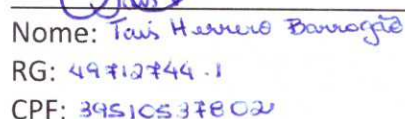 Nome: Tais Herrero Barragão
RG: 49712744.1
CPF: 39510537802